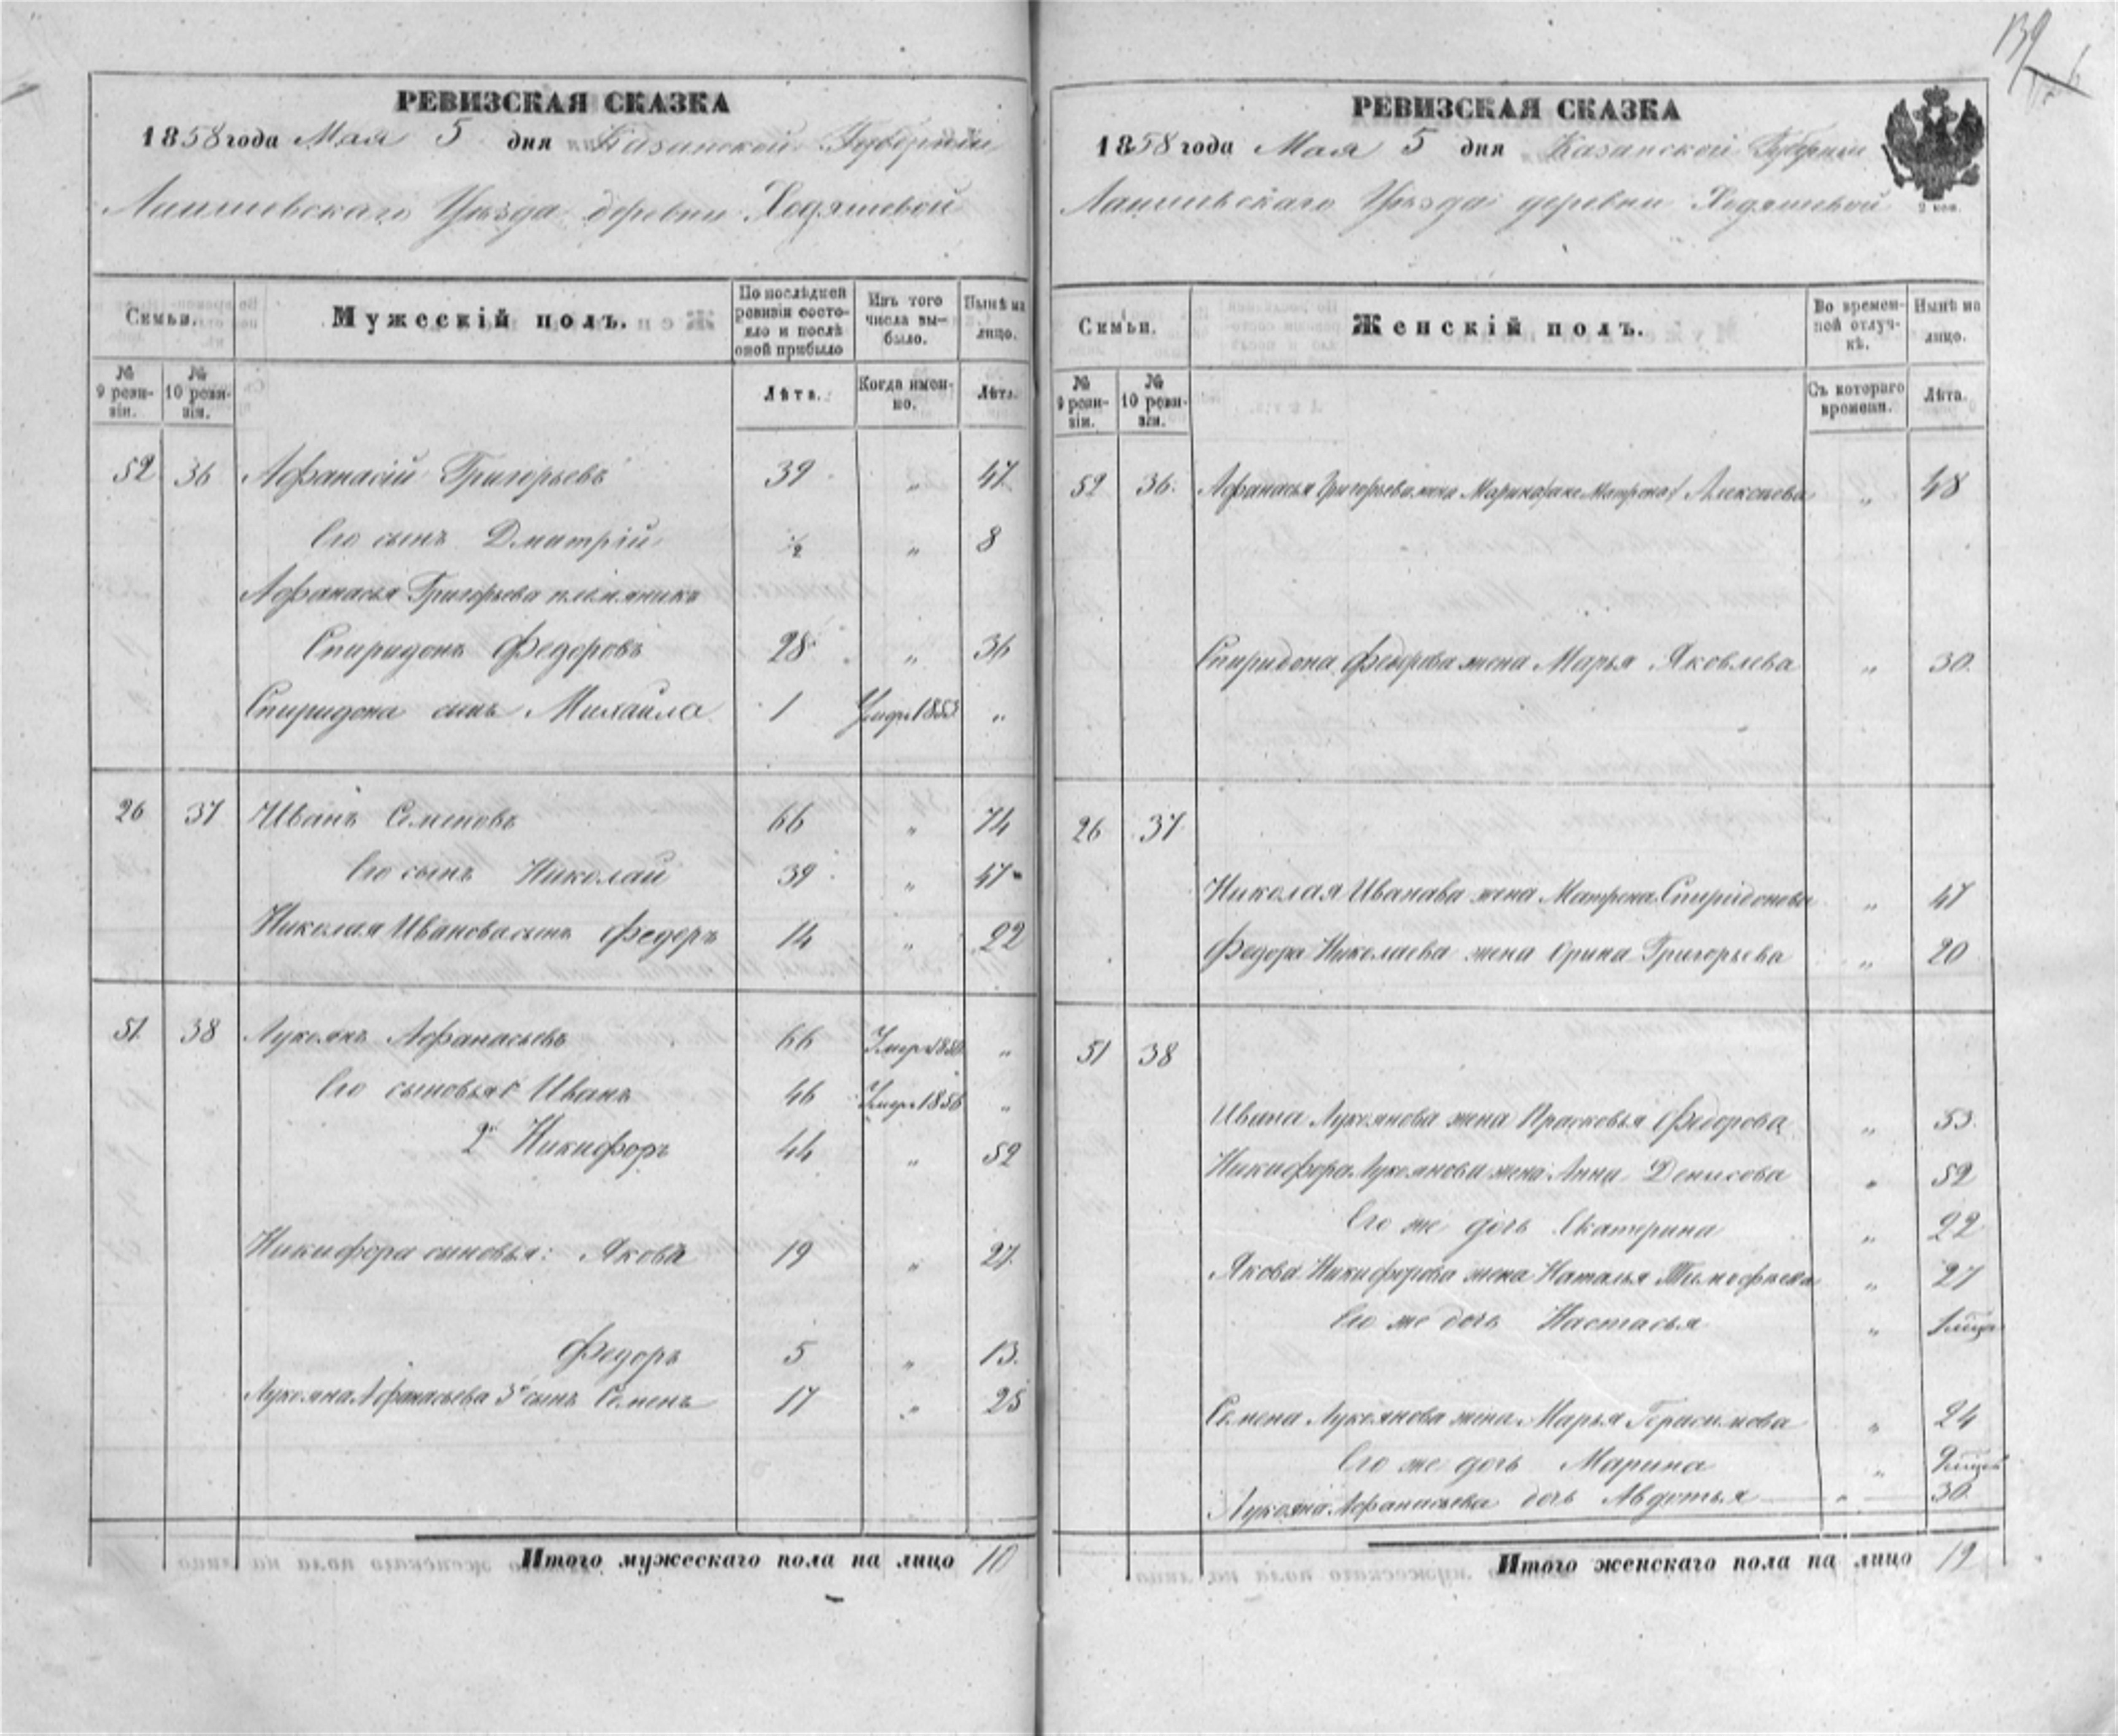 139
РЕВИЗСКАЯ СКАЗКА
1858 года Мая 5 дня Казанской Губернии
Лаишевскаго Уѣзда деревни Ходяшевой
Семьи. Мужескій полъ. По послѣдней ревизіи состояло и послѣ оной прибыло Изъ того числа выбыло. Нынѣ на лицо.
№ 9 ревизіи. № 10 ревизіи. Лѣта. Когда именно. Лѣта.
52 36 Афанасій Григорьевъ 39 „ 47
Его сынъ Дмитрій ½ „ 8
Афанасья Григорьева племяникъ
Спиридонъ Федоровъ 28 „ 36
Спиридона сынъ Михаила 1 Умеръ 1853 „
26 37 Иванъ Семеновъ 66 „ 74
Его сынъ Николай 39 „ 47
Николая Иванова сынъ Федоръ 14 „ 22
51 38 Лукоянъ Афанасьевъ 66 Умеръ „
Его сыновья 1й Иванъ 46 Умеръ 1856 „
2й Никифоръ 44 „ 52
Никифора сыновья: Яковъ 19 „ 27
Федоръ 5 „ 13
Лукояна Афанасьева 3й сынъ Семенъ 17 „ 25
Итого мужескаго пола на лицо 10
РЕВИЗСКАЯ СКАЗКА
1858 года Мая 5 дня Казанской Губерніи
Лаишевскаго Уѣзда деревни Ходяшевой
2 коп.
Семьи. Женскій полъ. Во временной отлучкѣ. Нынѣ на лицо.
№ 9 ревизіи. № 10 ревизіи. Съ котораго времени. Лѣта.
52 36 Афанасья Григорьева жена Марина /она же Матрена/ Алексѣева „ 48
Спиридона Федорова жена Марья Яковлева „ 30
26 37
Николая Иванава жена Матрена Спиридонова „ 47
Федора Николаева жена Орина Григорьева „ 20
51 38
Ивана Лукоянова жена Прасковья Федорова „ 53
Никифора Лукоянова жена Анна Денисова „ 52
Его же дочь Екатерина „ 22
Якова Никифорова жена Наталья Тимофѣева „ 27
Его же дочь Настасья „ 1
Семена Лукоянова жена Марья Герасимова „ 24
Его же дочь Марина „
Лукояна Афанасьева дочь Авдотья „ 30
Итого женскаго пола на лицо 12